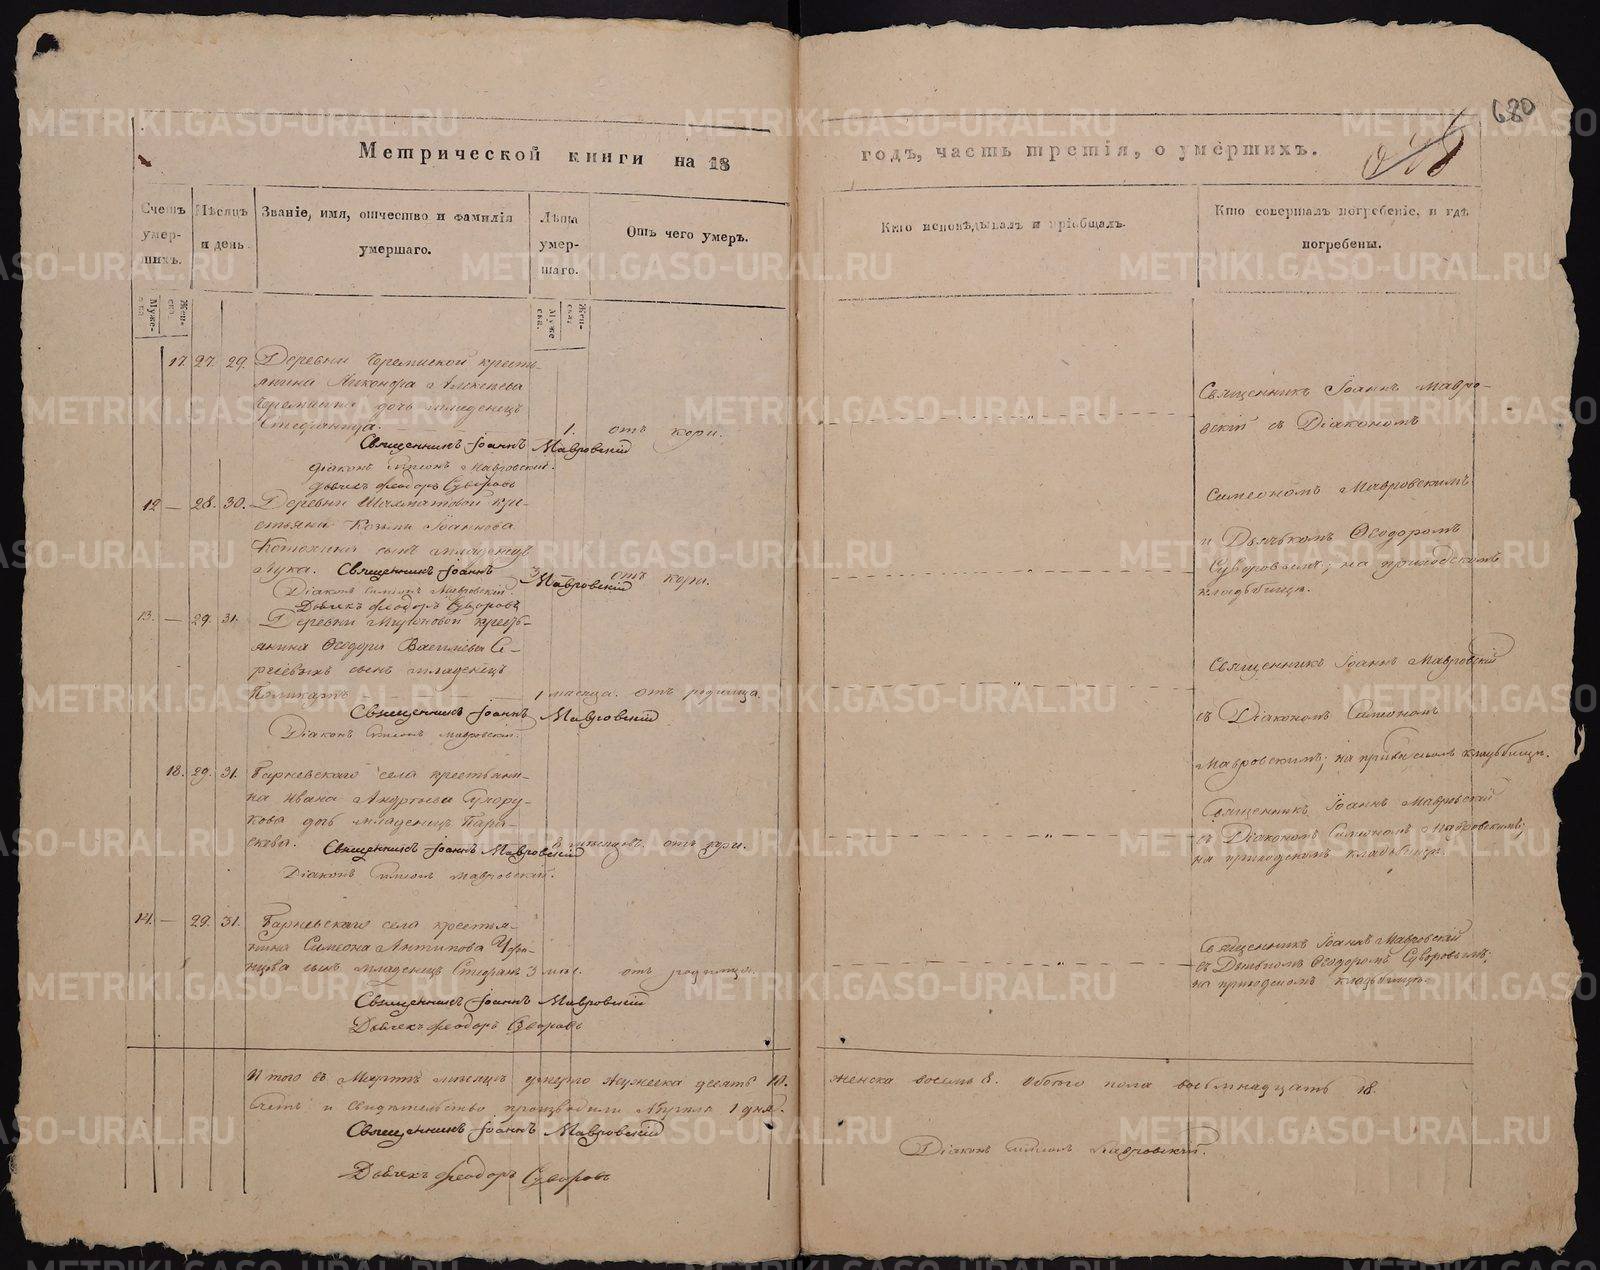 680
Метрической книги на 18
годъ, часть третія, о умершихъ.
Счетъ умер-шихъ.
Мѣсяцъ и день.
Званіе, имя, отчество и фамилія умершаго.
Лѣта умер-шаго.
Отъ чего умеръ.
Кто исповѣдывалъ и пріобщалъ.
Кто совершалъ погребеніе, и гдѣ погребены.
Муже-ска.
Жен-ска.
Муже-ска.
Жен-ска.
17. 27. 29. Деревни Черемиской кресть-
янина Никонора Алексѣева
дочь младенецъ
Стефанида. 1. отъ кори.
Священникъ Іоаннъ Мавровскій
Діаконъ Симеонъ Мавровскій.
Дьячекъ Феодоръ Суворовъ
Священникъ Іоаннъ Мавро-
вскій съ Діакономъ
Симеономъ Мавровскимъ
и Дьячкомъ Ѳеодоромъ
Суворовымъ; на приходскомъ
кладбищѣ.
12 — 28. 30. Деревни Шахматовой кре-
стьянина Козмы Іоаннова
сынъ младенецъ
Лука. 3 отъ кори.
Священникъ Іоаннъ Мавровскій
Діаконъ Симеонъ Мавровскій.
Дьячекъ Феодоръ Суворовъ
13. — 29. 31. Деревни кресть-
янина Ѳеодора Васильева Се-
ргеевыхъ сынъ младенецъ
Поликарпъ 1 мѣсяца. отъ родимца.
Священникъ Іоаннъ Мавровскій
Діаконъ Симеонъ Мавровскій.
Священникъ Іоаннъ Мавровскій
съ Діакономъ Симеономъ
Мавровскимъ; на кладбищѣ.
18. 29. 31. села крестьяни-
на Ивана Андреева Сухору-
кова дочь младенецъ Пара-
скева. мѣсяцовъ отъ кори.
Священникъ Іоаннъ Мавровскій
Діаконъ Симеонъ Мавровскій.
Священникъ Іоаннъ Мавровскій
съ Діакономъ Симеономъ Мавровскимъ;
на приходскомъ кладбищѣ.
14. — 29. 31. села крестья-
нина Симеона Антипова
сынъ младенецъ Стефанъ 3 мѣс. отъ родимца.
Священникъ Іоаннъ Мавровскій
Дьячекъ Феодоръ Суворовъ
Священникъ Іоаннъ Мавровскій
съ Дьячкомъ Ѳеодоромъ Суворовымъ;
на приходскомъ кладбищѣ.
Итого въ Мартѣ мѣсяцѣ умерло мужеска десять 10. женска восемь 8. обоего пола восемнадцать 18.
и свидѣтельство производили Апреля 1 дня.
Священникъ Іоаннъ Мавровскій
Діаконъ Симеонъ Мавровскій.
Дьячекъ Феодоръ Суворовъ
METRIKI.GASO-URAL.RU